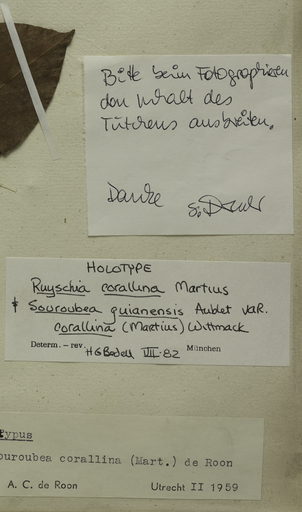 Bitte beim Fotographieren
den Inhalt des
Tütchens ausbreiten.
Danke
HOLOTYPE
Ruyschia corallina Martius
Souroubea guianensis Aublet var.
corallina (Martius) Wittmack
Determ. – rev. HG Bedell VIII·82 München
typus
ouroubea corallina (Mart.) de Roon
A. C. de Roon Utrecht II 1959